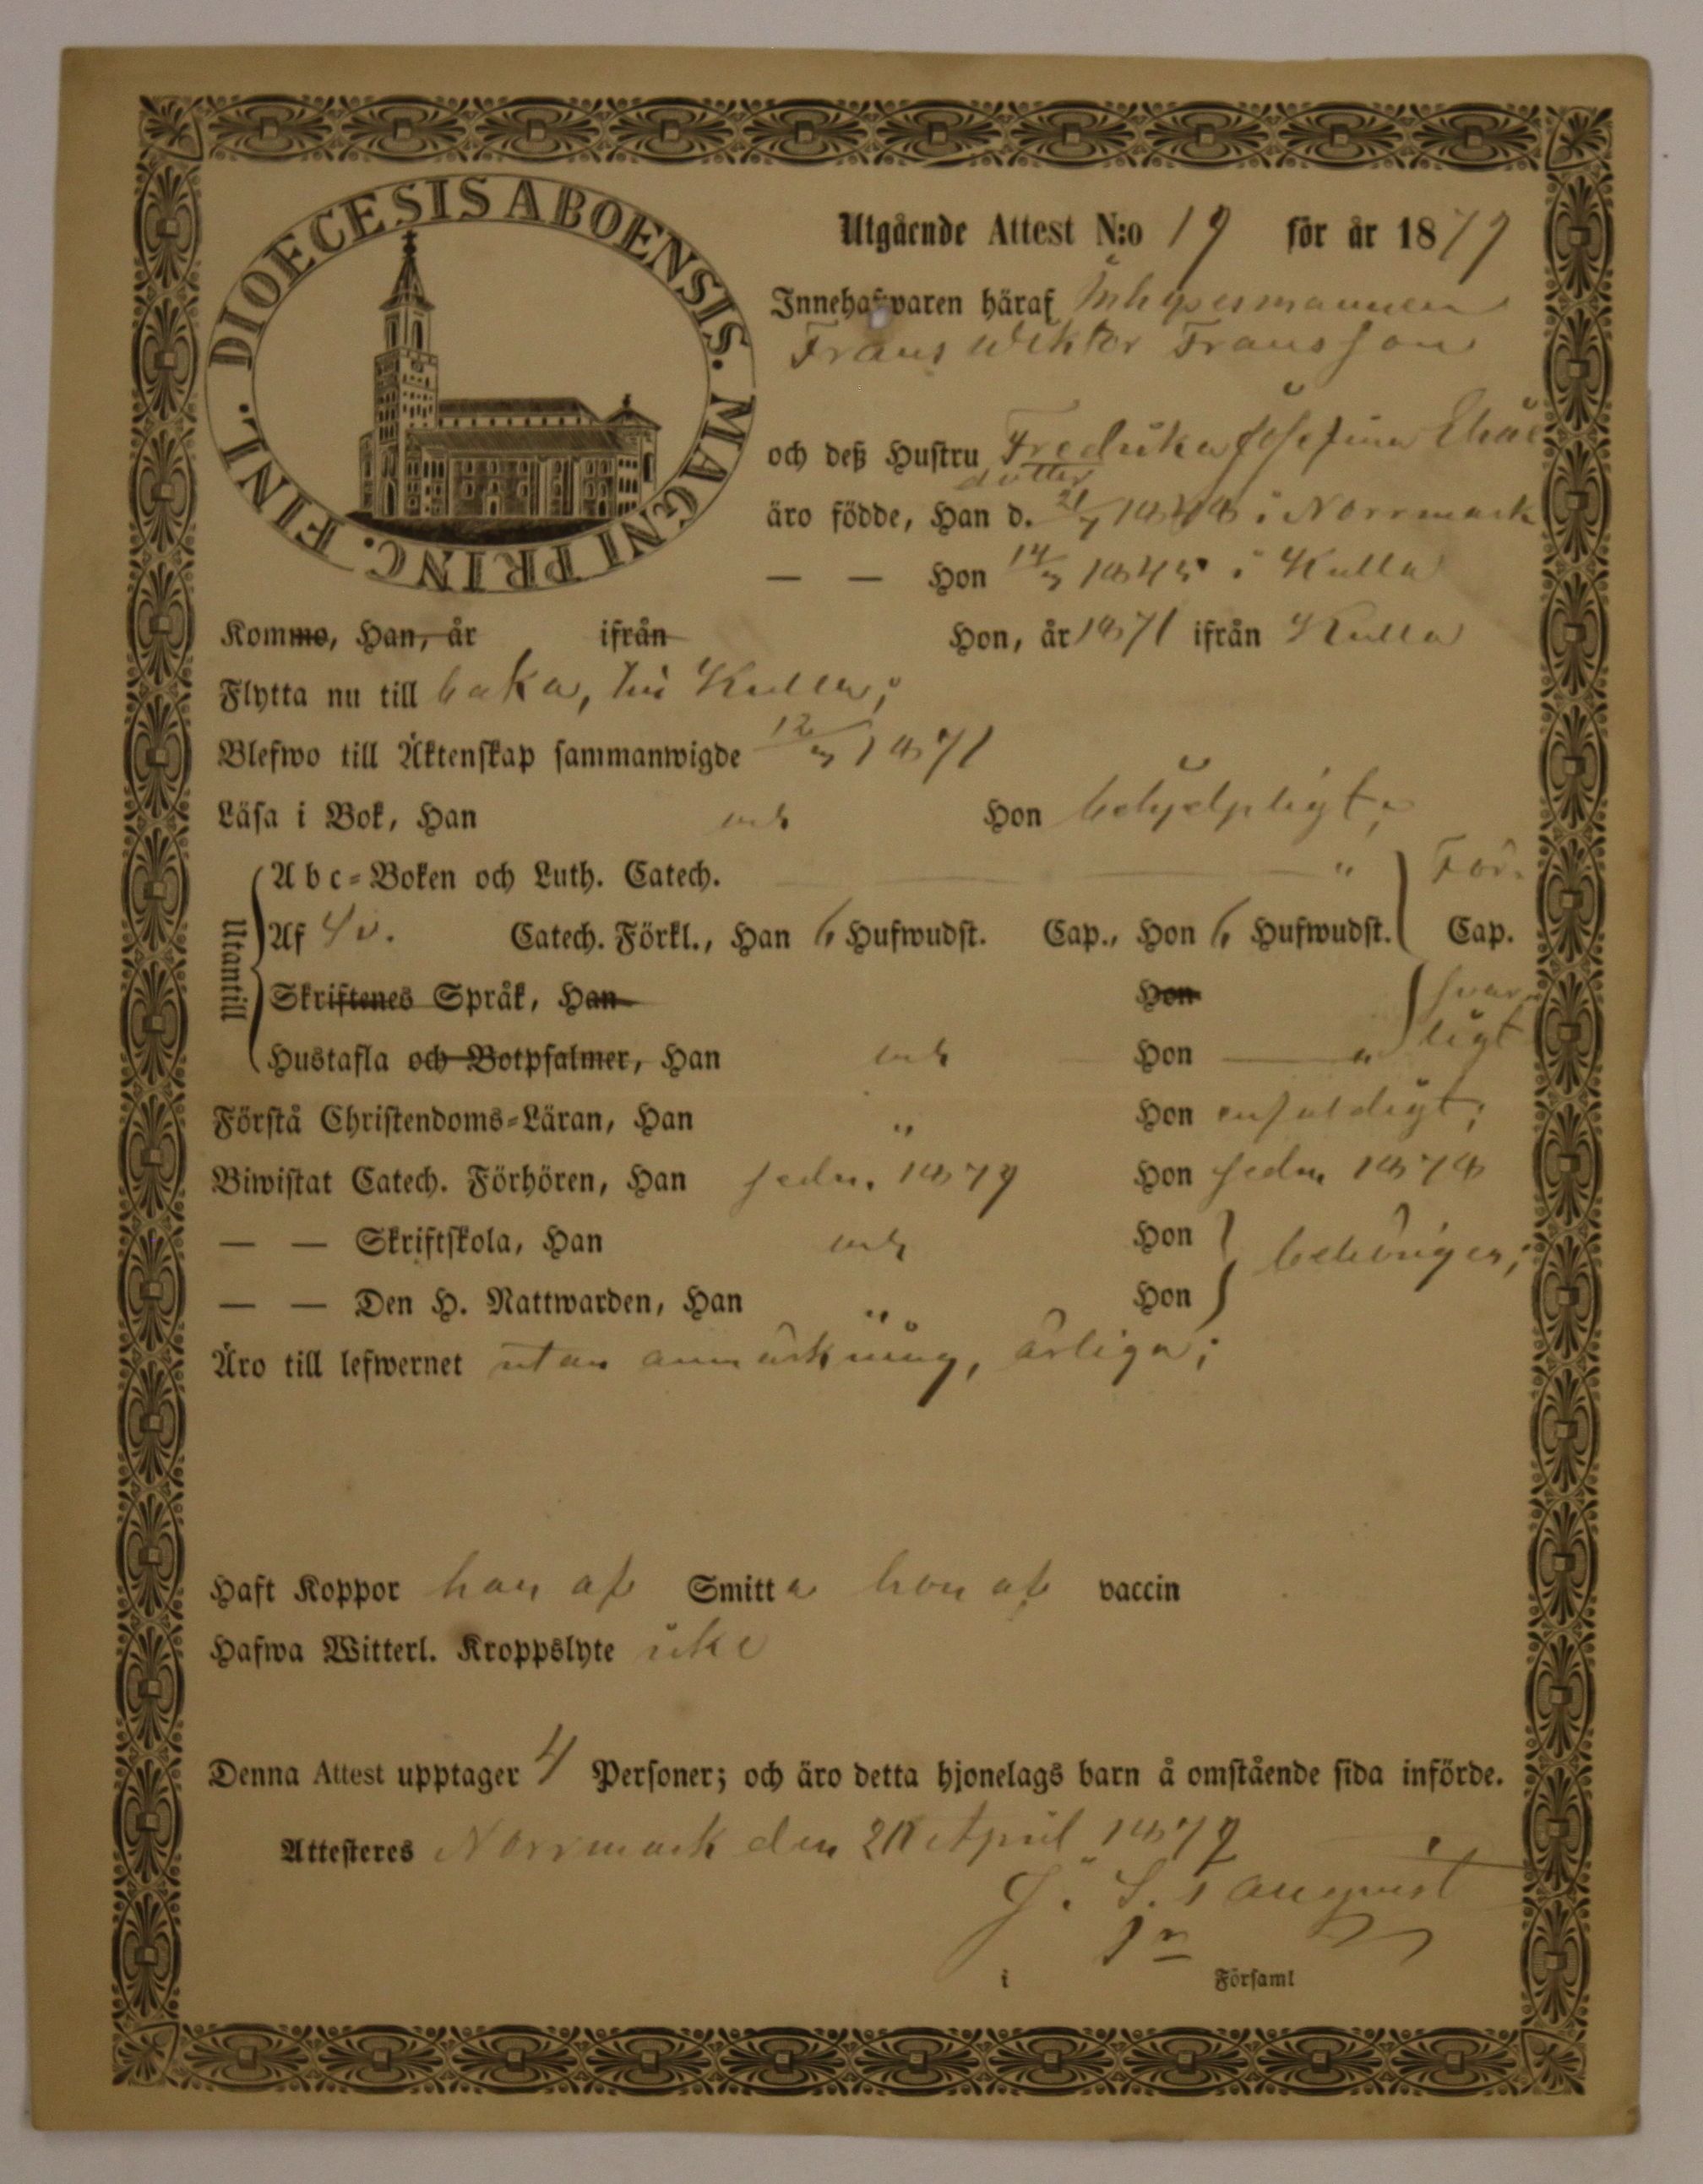 DIOECESIS ABOENSIS. MAGNI PRINC. FINL.
Utgående Attest N:o 19 för år 1879
Innehafwaren häraf Inhysesmannen
Frans Wiktor Fransson
och deß Hustru Fredrika Josefina Elias
dotter
äro födde, Han d. 21/7 1848 i Norrmark
— — Hon 14/3 1845 i Kulla
Komme, Han, år ifrån Hon, år 1871 ifrån Kulla
Flytta nu till baka, till Kulla;
Blefwo till Äktenskap sammanwigde 12/3 1871
Läsa i Bok, Han och Hon behjelpligt;
Utantill
Abc-Boken och Luth. Catech. " För.
Af Sv. Catech. Förkl., Han 6 Hufwudst. Cap., Hon 6 Hufwudst. Cap.
Skriftenes Språk, Han Hon svar
Hustafla och Botpsalmer, Han och Hon " ligt
Förstå Christendoms-Läran, Han " Hon enfaldigt;
Biwistat Catech. Förhören, Han sedn. 1879 Hon sedn 1878
— — Skriftskola, Han och Hon behörigen;
— — Den H. Nattwarden, Han " Hon
Äro till lefwernet utan anmärkning, ärliga;
Haft Koppor han af Smitta hon af vaccin
Hafwa Witterl. Kroppslyte icke
Denna Attest upptager 4 Personer; och äro detta hjonelags barn å omstående sida införde.
Attesteres Norrmark den April 1879
i Församl